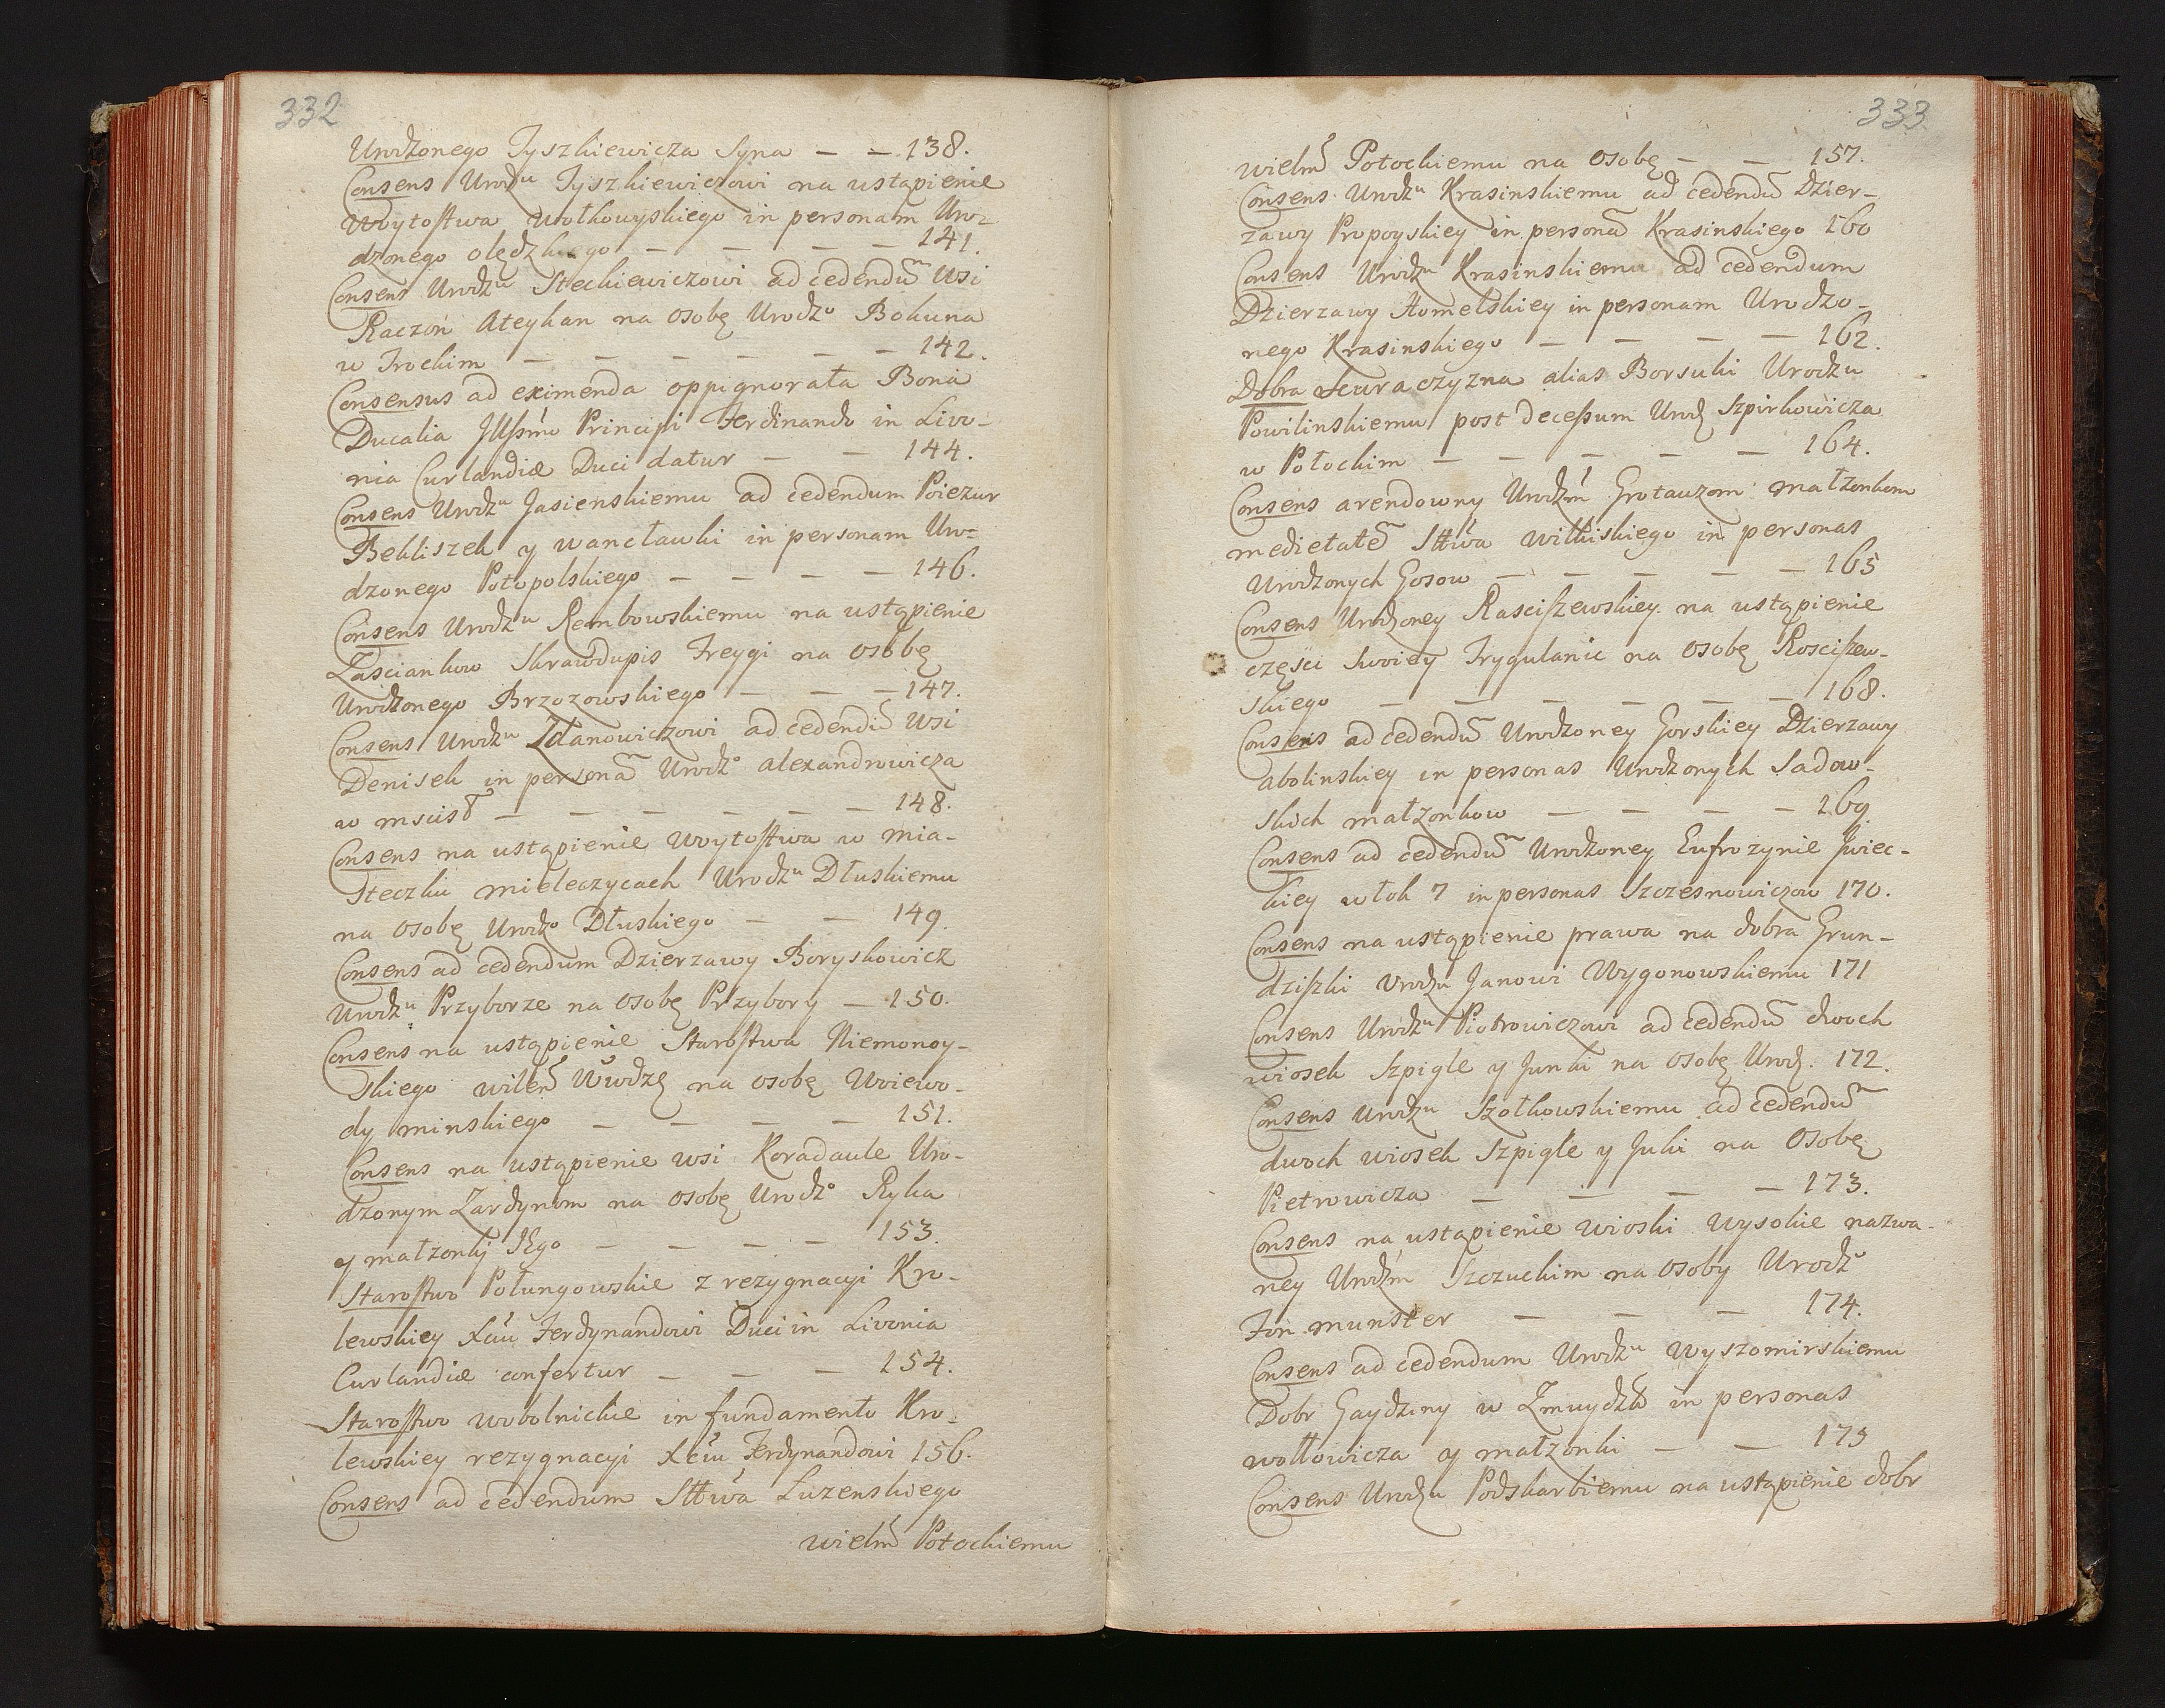 332
Urodzonego Tyszkiewicza Syna — — 138.
Consens Urodzu Tyszkiewiczowi na ustąpienie
Woytostwa wołkowyskiego in personam Uro-
dzonego olędzkiego — — — — 141.
Consens Urodzu Steckiewiczowi ad cedendũ Wsi
Raczoń Ateykan na osobę Urodzo Bohuna
w Trockim — — — — — — 142.
Consensus ad eximenda oppignorata Bona
Ducalia Illssmo Principi Ferdinando in Livo-
nia Curlandiæ Duci datur — — 144.
Consens Urodzu Jasienskiemu ad cedendum Poiezur
Bekliszek y wancławki in personam Uro-
dzonego Potopolskiego — — — — 146.
Consens Urodzu Rembowskiemu na ustąpienie
Zasciankow Skrawdupis Treygi na osobę
Urodzonego Brzozowskiego — — — 147.
Consens Urodzu Zdanowiczowi ad cedendũ Wsi
Denisek in personã Urodzo alexandrowicza
w mscisł — — — — — — 148.
Consens na ustąpienie woytostwa w mia-
steczku mieleczycach Urodzu Dłuskiemu
na osobę Urodzo Dłuskiego — — 149.
Consens ad cedendum Dzierzawy Boryskowicz
Urodzu Przyborze na osobę Przybory — 150.
Consens na ustąpienie Starostwa Niemonoy-
skiego wileń Wwdzę na osobę Woiewo-
dy minskiego — — — — 151.
Consens na ustąpienie wsi Koradaule Uro-
dzonym Zardynom na osobę Urodzo Ryka
y małzonky JEgo — — — — 153.
Starostwo Połungowskie z rezygnacyi Kro-
lewskiey Xciu Ferdynandowi Duci in Livonia
Curlandiæ confertur — — — 154.
Starostwo wobolnickie in fundamento Kro-
lewskiey rezygnacyi Xciu Ferdynandowi 156.
Consens ad cedendum Sttwa Luzenskiego
wielm Potockiemu
333
wielm Potockiemu na osobę — — 157.
Consens Urodzu Krasinskiemu ad cedendũ Dzier-
zawy Propoyskiey in personã Krasinskiego 160
Consens Urodzu Krasinskiemu ad cedendum
Dzierzawy Homelskiey in personam Urodzo-
nego Krasinskiego — — — — 162.
Dobra Scuraczyzna alias Borsuki Urodzu
Powilinskiemu post decessum Urodz Szpirkowicza
w Połockim — — — — — 164.
Consens arendowny Urodzm Grotauzom małzonkom
medietatẽ Sttwa wilkiskiego in personas
Urodzonych Gosow — — — — — 165
Consens Urodzoney Rasciszewskiey na ustąpienie
częsci swoiey Trygulanie na osobę Rosciszew-
skiego — — — — — — 168.
Consens ad cedendũ Urodzoney Gorskiey Dzierzawy
abolinskiey in personas Urodzonych Sadow-
skich małzonkow — — — — 169.
Consens ad cedendũ Urodzoney Eufrozynie Swiec-
kiey włok 7 in personas Szczesnowiczow 170.
Consens na ustąpienie prawa na dobra Grun-
dziszki Urodzu Janowi Wygonowskiemu 171
Consens Urodzu Piotrowiczowi ad cedendũ dwoch
wiosek Szpigle y Junki na osobę Urodz. 172.
Consens Urodzu Szotkowskiemu ad cedendũ
dwoch wiosek Szpigle y Juki na Osobę
Pietrowicza — — — — 173.
Consens na ustąpienie wioski wysokie nazwa-
ney Urodzm Szczuckim na osoby Urodzo
Fon munster — — — 174.
Consens ad cedendum Urodzu Wyszomirskiemu
Dobr Gaydziny w Zmuydzkim in personas
wołłowicza y małzonki — — 175
Consens Urodzu Podskarbiemu na ustąpienie dobr